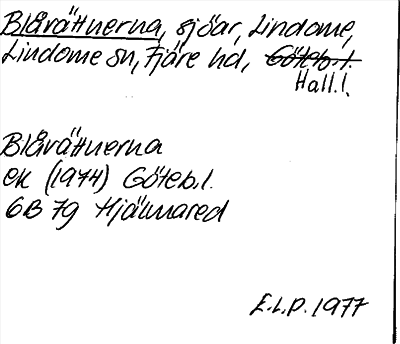 Blåvättnerna, sjöar, Lindome,
Lindome sn, Fjäre hd, Göteb.l.
Hall.l.
Blåvättnerna
ek (1974) Göteb.l.
6B 7g Hjälmared
E.L.P. 1977